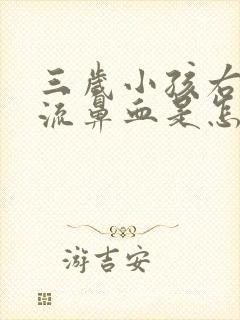 三岁小孩右
流鼻血是怎
游吉安